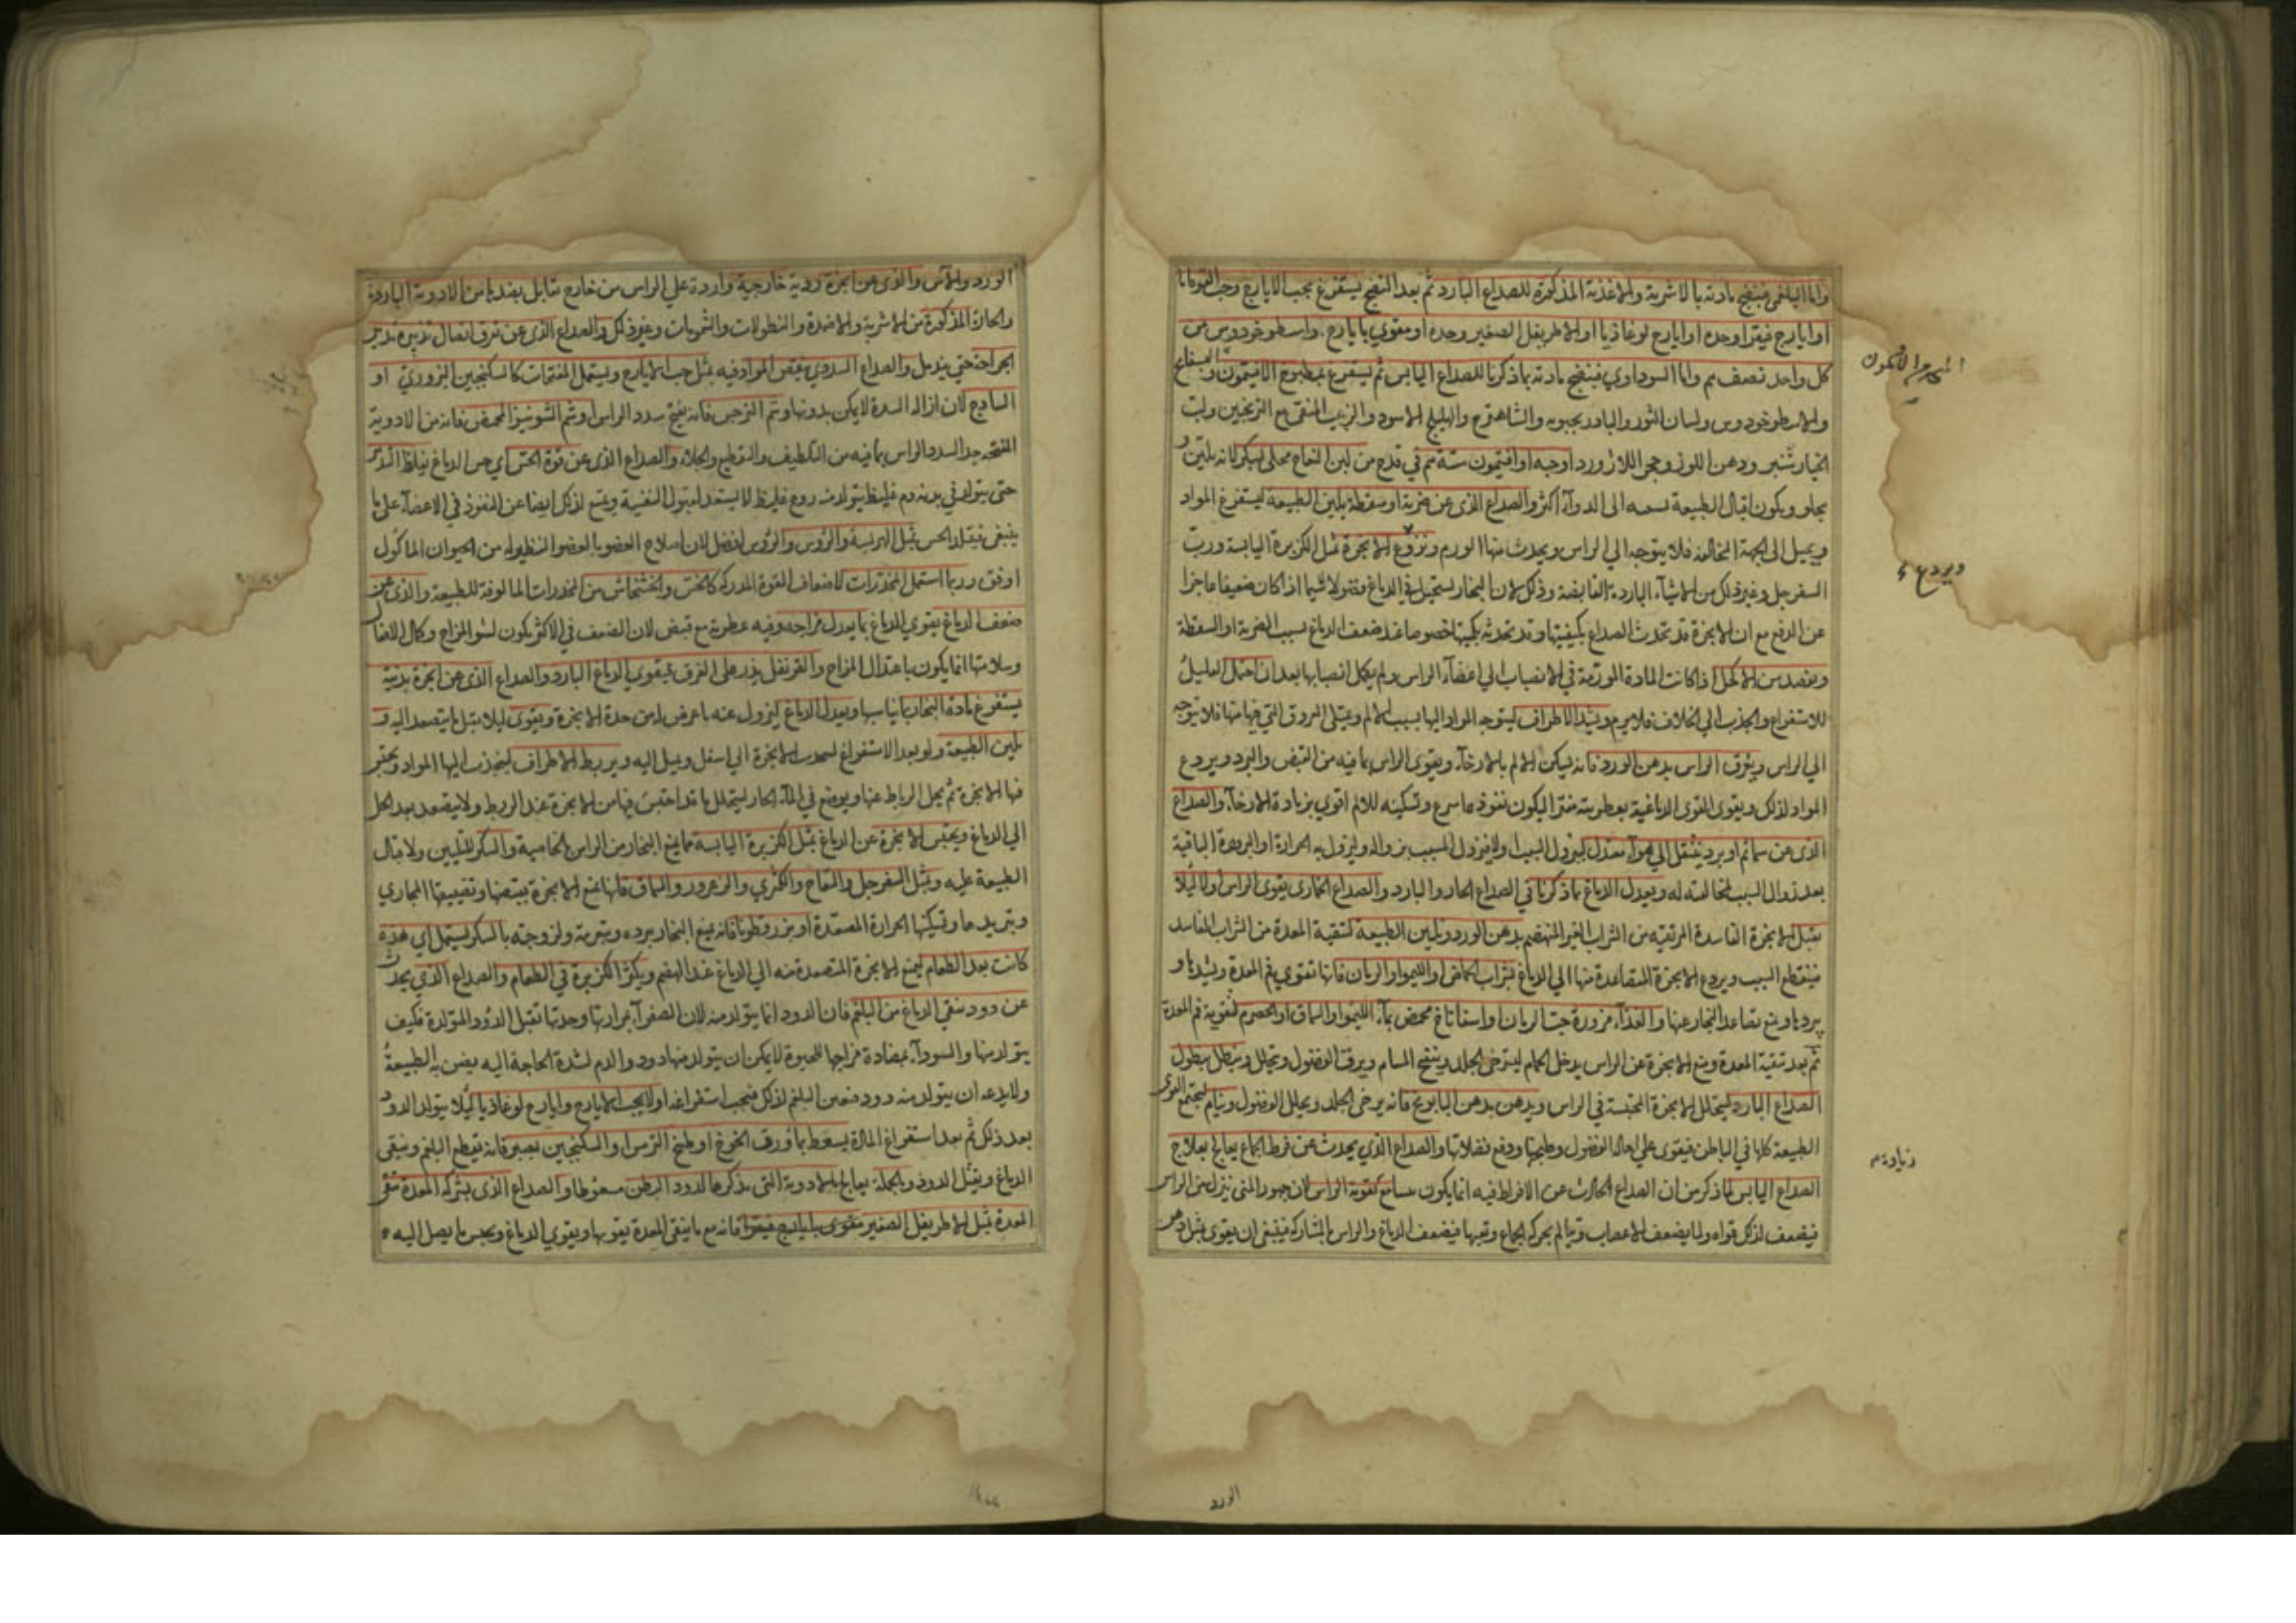 واما البلغمي فينضج مادته بالاشربة والاغذية المذكورة للصداع البارد ثم بعد النضج يستفرغ بحب الايارج وحب القوقايا
او ايارج فيقرا وحده او ايارج لوغاذيا او الاطريفل الصغير وحده او مقوي بايارج واسطوخودوس من
كل واحد نصف م واما السوداوي فينضج مادته بما ذكرنا للصداع اليابس ثم يستفرغ بمطبوخ الافتيمون والبسفايج
والاسطوخودوس ولسان الثور والبادرنجبويه والشاهترج والهليلج الاسود والزبيب المنقى مع الترنجبين ولب
الخيارشنبر ودهن اللوز وحجر اللازورد او حبه او افتيمون ستة م في قدح من لبن النعاج محلى بسكر فانه يلين و
يجلو ويكون اقبال الطبيعة بسببه الى الدواء اكثر والصداع الذي عن ضربة او سقطة يلين الطبيعة ليستفرغ المواد
ويميل الى الجهة المخالفة فلا يتوجه الى الراس ويحدث منها الورم وتردع الابخرة مثل الكزبرة اليابسة ورب
السفرجل وغير ذلك من الاشياء الباردة القابضة وذلك لان البخار يستحيل في الدماغ فضولا لاسيما اذا كان ضعيفا عاجزا
عن الدفع مع ان الابخرة قد تحدث الصداع بكيفيتها وقد تحدثه بكميتها خصوصا عند ضعف الدماغ بسبب الضربة او السقطة
ويفصد من الاكحل اذا كانت المادة المورمة في الانصباب الي اعضاء الراس ولم يكمل انصبابها بعد ان احتمل العليل
للاستفراغ والجذب الى الخلاف فلا يرم ويشد الاطراف ليتوجه المواد اليها بسبب الالم ويمتلى العروق التي فيها منها فلا يتوجه
الي الراس ويغرق الراس بدهن الورد فانه يسكن الالم بالارخاء ويقوى الراس بما فيه من القبض والبرد ويردع
المواد لذلك ويقوى القوى الدماغية بعطريته مفترا ليكون نفوذه اسرع وتسكينه للالم اقوي بزيادة الارخاء والصداع
الذي عن سمائم او برد ينتقل الي هواء معتدل ليزول السبب اولا فيزول المسبب بزواله ويزول به الحرارة او البرودة الباقية
بعد زوال السبب لمخالفته له ويعدل الدماغ بما ذكرنا في الصداع الحار والبارد والصداع الخماري يقوى الراس اولا لئلا
يقبل الابخرة الفاسدة المرتقية من الشراب الغير المنهضم بدهن الورد ويلين الطبيعة لتنقية المعدة من الشراب الفاسد
فينقطع السبب ويردع الابخرة المتصاعدة منها الي الدماغ بشراب الحماض او الليمو او الرمان فانها تقوي فم المعدة ويشدها و
يبردها ويمنع تصاعد البخار عنها والغذاء مزورة حب الرمان او اسفاناخ محمض بماء الليمو او السماق او الحصرم لتقوية فم المعدة
ثم بعد تنقية المعدة ومنع الابخرة عن الراس يدخل الحمام ليسترخى الجلد وينفتح المسام ويرق الفضول وتحلل وينطل بنطول
الصداع البارد ليتحلل الابخرة المحتبسة في الراس ويدهن بدهن البابونج فانه يرخى الجلد ويحلل الفضول وينام ليجتمع القوى
الطبيعة كلها في الباطن فيقوى علي احالة الفضول وطبخها ودفع فضلاتها والصداع الذي يحدث عن فرط الجماع يعالج بعلاج
الصداع اليابس لما ذكر من ان الصداع الحادث عن الافراط فيه انما يكون ساذجا مع تقوية الراس لان جوهر المنى ينزل من الراس
فيضعف لذلك قواه ولما يضعف الاعصاب وتتالم بحركة الجماع وتعبها فيضعف الدماغ والراس بالمشاركة فينبغى ان يقوى بمثل دهن
ويردع
زيادة م
الورد
الورد والآس والذي عن ابخرة ردية خارجية واردة علي الراس من خارج تقابل بضدها من الادوية الباردة
والحارة المذكورة من الاشربة والاضمدة والنطولات والشمومات وغير ذلك والصداع الذي عن تفرق اتصال تدبيره تدبير
الجراحة حتي يندمل والصداع السددي ينقص المواد فيه بمثل حب الايارج ويستعمل المفتحات كالسكنجبين البزوري او
الساذج لان ازالة السدة لا يمكن بدونها وشم النرجس فانه يفتح سدد الراس او شم الشونيز المحمص فانه من الادوية
المفتحه جدا لسدد الراس بما فيه من التلطيف والتقطيع والجلاء والصداع الذي عن قوة الحس اي حس الدماغ يغلظ التدبير
حتى يتولد في بدنه دم غليظ يتولد منه روح غليظ لا يستعد لقبول النفسية ويمنع لذلك ايضا عن النفوذ في الاعضاء على ما
ينبغى فيقل الحس بمثل الهريسة والرؤس والرؤس افضل لان اصلاح العضو بالعضو النظير له من الحيوان الماكول
اوفق وربما استعمل المخدرات لاضعاف القوة المدركة كالخس والخشخاش من المخدرات المالوفة للطبيعة والذي عن
ضعف الدماغ يقوي الدماغ بما يعدل مزاجه وفيه عطرية مع قبض لان الضعف في الاكثر يكون لسوء المزاج وكمال الافعال
وسلامتها انما يكون باعتدال المزاج والقرنفل يذر على الفرق فيقوي الدماغ البارد والصداع الذي عن ابخرة بدنية
يستفرغ مادة البخار بما يناسبها ويعدل الدماغ ليزول عنه ما عرض له من حدة الابخرة ويقوى ليلا يقبل ما يتصعد اليه و
يلين الطبيعة ولو بعد الاستفراغ لتجذب الابخرة الي اسفل وتميل اليه ويربط الاطراف لينجذب اليها المواد وتحتبس
فيها الابخرة ثم يحل الرباط عنها ويوضع في الماء الحار ليتحلل ما قد احتبس فيها من الابخرة عند الربط ولا يتصعد بعد الحل
الي الدماغ ويحبس الابخرة عن الدماغ بمثل الكزبرة اليابسة مما يمنع البخار من الراس بالخاصية والسكر للتليين ولاقبال
الطبيعة عليه وبمثل السفرجل والتفاح والكمثري والزعرور والسماق فانها تمنع الابخرة بقبضها وتضييقها المجاري
وبتبريدها وتسكينها الحرارة المصعدة او بزر قطونا فانه يمنع البخار ببرده وبتغريته ولزوجته بالسكر ليستعمل اي هذه
كانت بعد الطعام ليمنع الابخرة المتصعدة منه الي الدماغ عند الهضم ويكثر الكزبرة في الطعام والصداع الذي يحدث
عن دود ينقي الدماغ من البلغم فان الدود انما يتولد منه لان الصفراء بمرارتها وحدتها تقتل الدود المتولدة فكيف
يتولد منها والسوداء بمضادة مزاجها للحيوة لا يمكن ان يتولد منها دود والدم لشدة الحاجة اليه يضن به الطبيعة
ولا يدعه ان يتولد منه دود فتعين البلغم لذلك فيجب استفراغه اولا بحب الايارج وايارج لوغاذيا لئلا يتولد الدود
بعد ذلك ثم بعد استفراغ المادة يسعط بماء ورق الخوخ او طبيخ الترمس او السكنجبين بصبر فانه يقطع البلغم وينقى
الدماغ ويقتل الدود وبالجملة يعالج بالادوية التي نذكرها لدود البطن سعوطا والصداع الذى بشركة المعدة ينقى
المعدة بمثل الاطريفل الصغير مقوى بايارج فيقرا فانه مع ما ينقى المعدة يقويها ويقوي الدماغ ويحبس ما يصل اليه